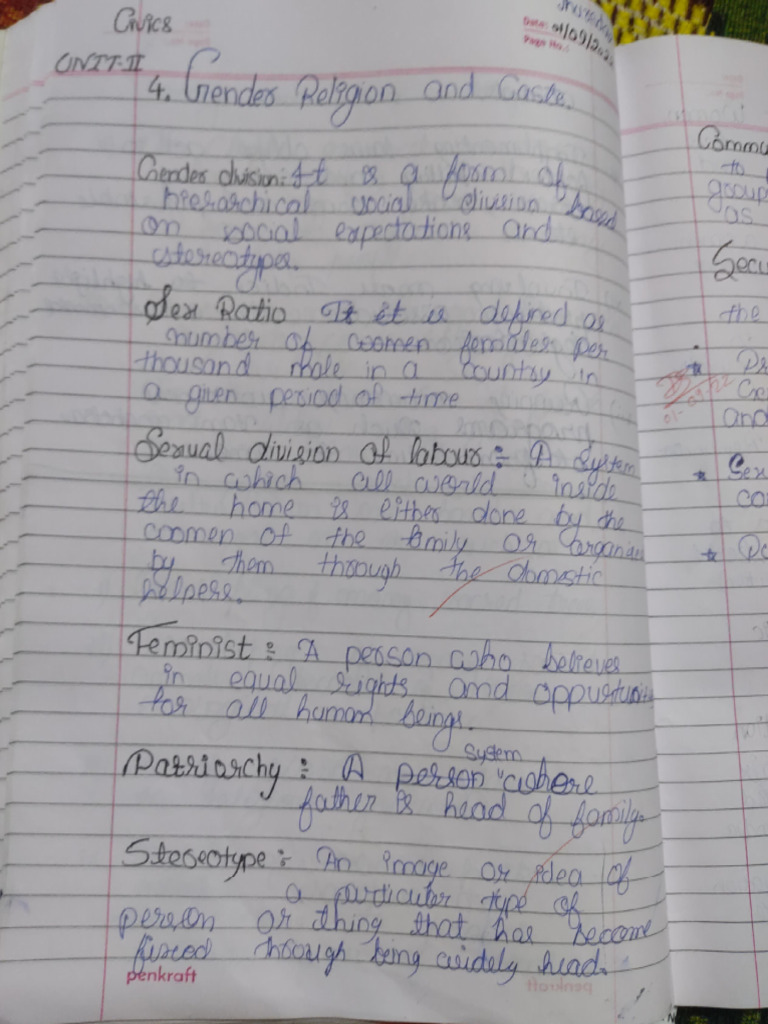 Civics
Date: 01/09/202
Page No.:
UNIT-II
4. Gender Religion and Caste.
Gender division: It is a form of
hierarchical social division based
on social expectations and
stereotypes.
Sex Ratio It it is defined as
number of women females per
thousand male in a country in
a given period of time
Sexual division of labour:- A System
in which all world inside
the home is either done by the
women of the family or organise
by them through the domestic
helpers.
Feminist:- A person who believes
in equal rights and oppurtunit
for all human beings.
system
Patriarchy:- A person "where
father is head of family.
Stereotype:- An image or idea of
a particular type of
person or thing that has become
fixed through being widely head.
penkraft
Commu
to
group
as
Secu
the
Pr
01-09-22
and
Sex
co